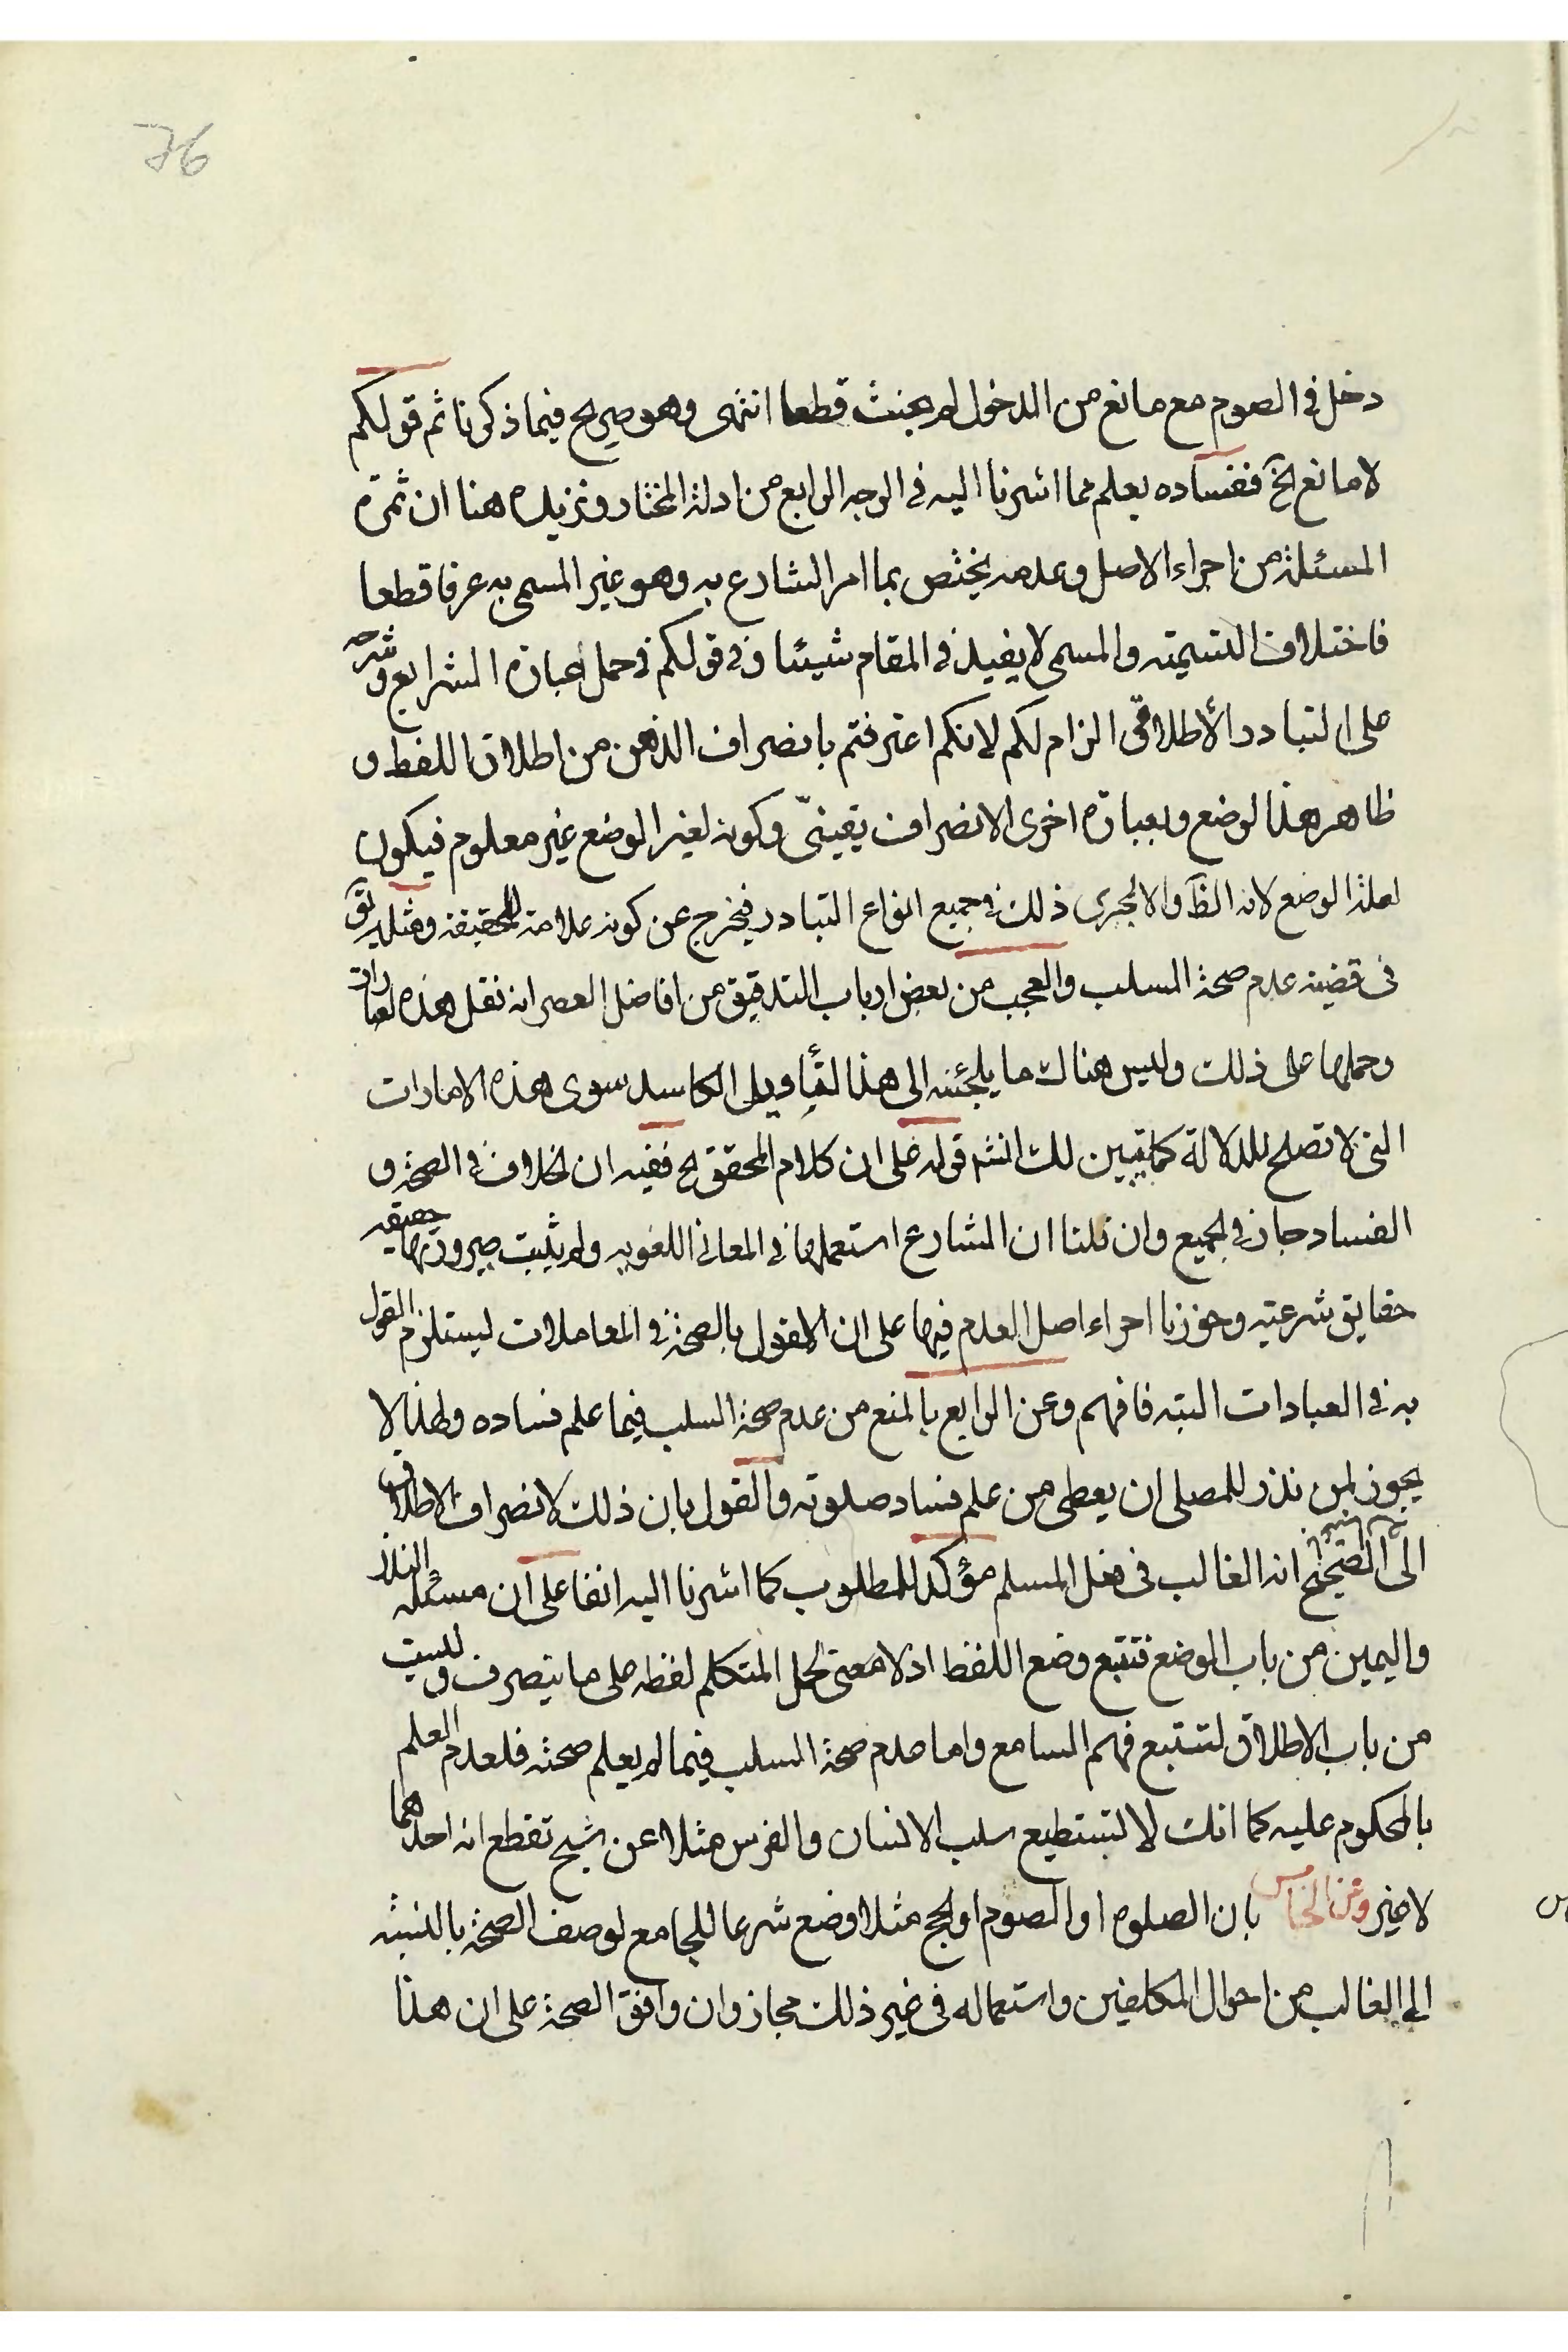 76
دخل في الصوم مع مانع من الدخول لم يحنث قطعا انتهى وهو صريح فيما ذكرنا ثم قولكم
لا مانع الخ ففساده يعلم مما اشرنا اليه في الوجه الرابع من ادلة المختار ونزيد هنا ان ثمرة
المسئلة من اجراء الاصل وعدمه يختص بما امر الشارع به وهو غير المسمى به عرفا قطعا
فاختلاف التسمية والمسمى لا يفيد في المقام شيئا وفي قولكم في حمل عبارة الشرايع وشرحه
على التبادر الأطلاقي الزام لكم لانكم اعترفتم بانصراف الذهن من اطلاق اللفظ و
ظاهر هذا لوضع وبعبارة اخرى الانصراف يقينيّ وكونه لغير الوضع غير معلوم فيكون
لعلة الوضع لانه الظ والا لجرى ذلك في جميع انواع التبادر فيخرج عن كونه علامة للحقيقة ومثله يق
في قضية عدم صحة السلب والعجب من بعض ارباب التدقيق من افاضل العصر انه نقل هذه لعبارات
وحملها على ذلك وليس هناك ما يلجئنه الى هذا لتأويل الكاسد سوى هذه الامارات
التى لا تصلح للدلالة كما تبين لك انشه قوله على ان كلام المحقق لخ ففيه ان لخلاف في الصحة و
الفساد جاز في لجميع وان قلنا ان الشارع استعملها في المعاني اللغويه ولم يثبت صيرورتها حقيقه
حقايق شرعيته وجوزنا اجراء اصل العدم فيها على ان القول بالصحة في المعاملات ليستلزم القول
به في العبادات البته فافهم وعن الرابع بالمنع من عدم صحة السلب فيما علم فساده ولهذا لا
يجوز لمن نذر للمصلى ان يعطى من علم فساد صلوته والقول بان ذلك لانصراف الاطلاق
الى الصحيح انه الغالب في فعل المسلم مؤكد للمطلوب كما اشرنا اليه انفا على ان مسئلة النذر
واليمين من باب الوضع فتتبع وضع اللفظ اذ لا معنى لحمل المتكلم لفظه على ما ينصرف وليست
من باب الاطلاق لتتبع فهم السامع واما عدم صحة السلب فيما لم يعلم صحته فلعدم العلم
بالمحكوم عليه كما انك لا تستطيع سلب الانسان والفرس مثلا عن شبح تقطع انه احدهما
لا غير وعن الخامس بان الصلوه او الصوم او لحج مثلا وضع شرعا للجامع لوصف الصحة بالنسبة
الى الغالب من احوال المكلفين واستعماله في غير ذلك مجاز وان وافق الصحة على ان هذا